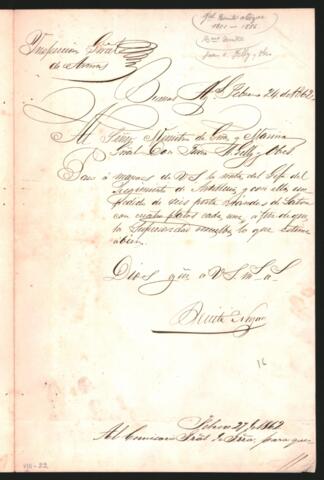 Inspeccion Gral
de Armas
Buenos Ays Febrero 24 de 1862
Al Señor Ministro de Gra y Marina
Gral Don Juan A. Gelly y Obes
Paso á manos de V.S. la nota del Jefe del
Regimiento de Artilleria y con ella un
pedido de seis porta
con cuatro cada uno, á fin de que
la Superioridad resuelva lo que estime
á bien.
Dios gue á V.S. m. a.s
Benito Nazar
16
Febrero 27/1862
Al Comisario Gral de Gra, para que
VIII-22